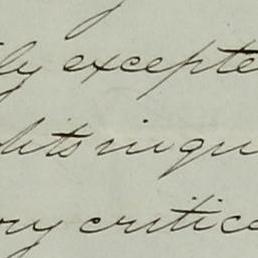 ly excepte
bits inqu
ory critica